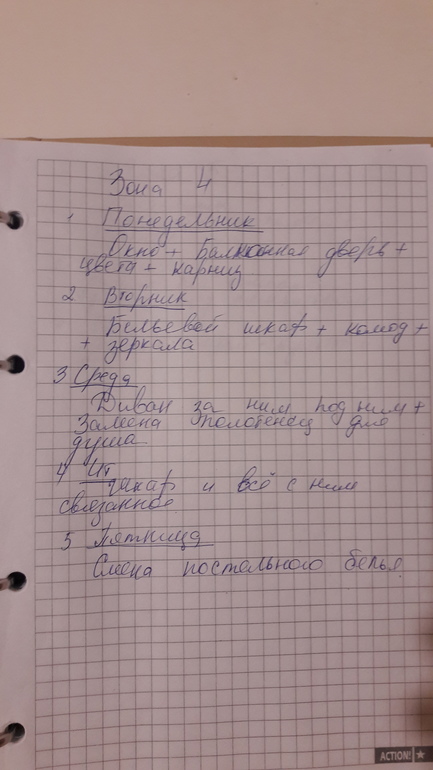 Зона 4
1 Понедельник
Окно + Балконная дверь +
цветы + карниз
2 Вторник
Бельевой шкаф + комод +
+ зеркала
3 Среда
Диван за ним под ним +
Замена полотенец для
душа
4 Чт
шкаф и всё с ним
связанное
5 Пятница
Смена постельного белья
ACTION!